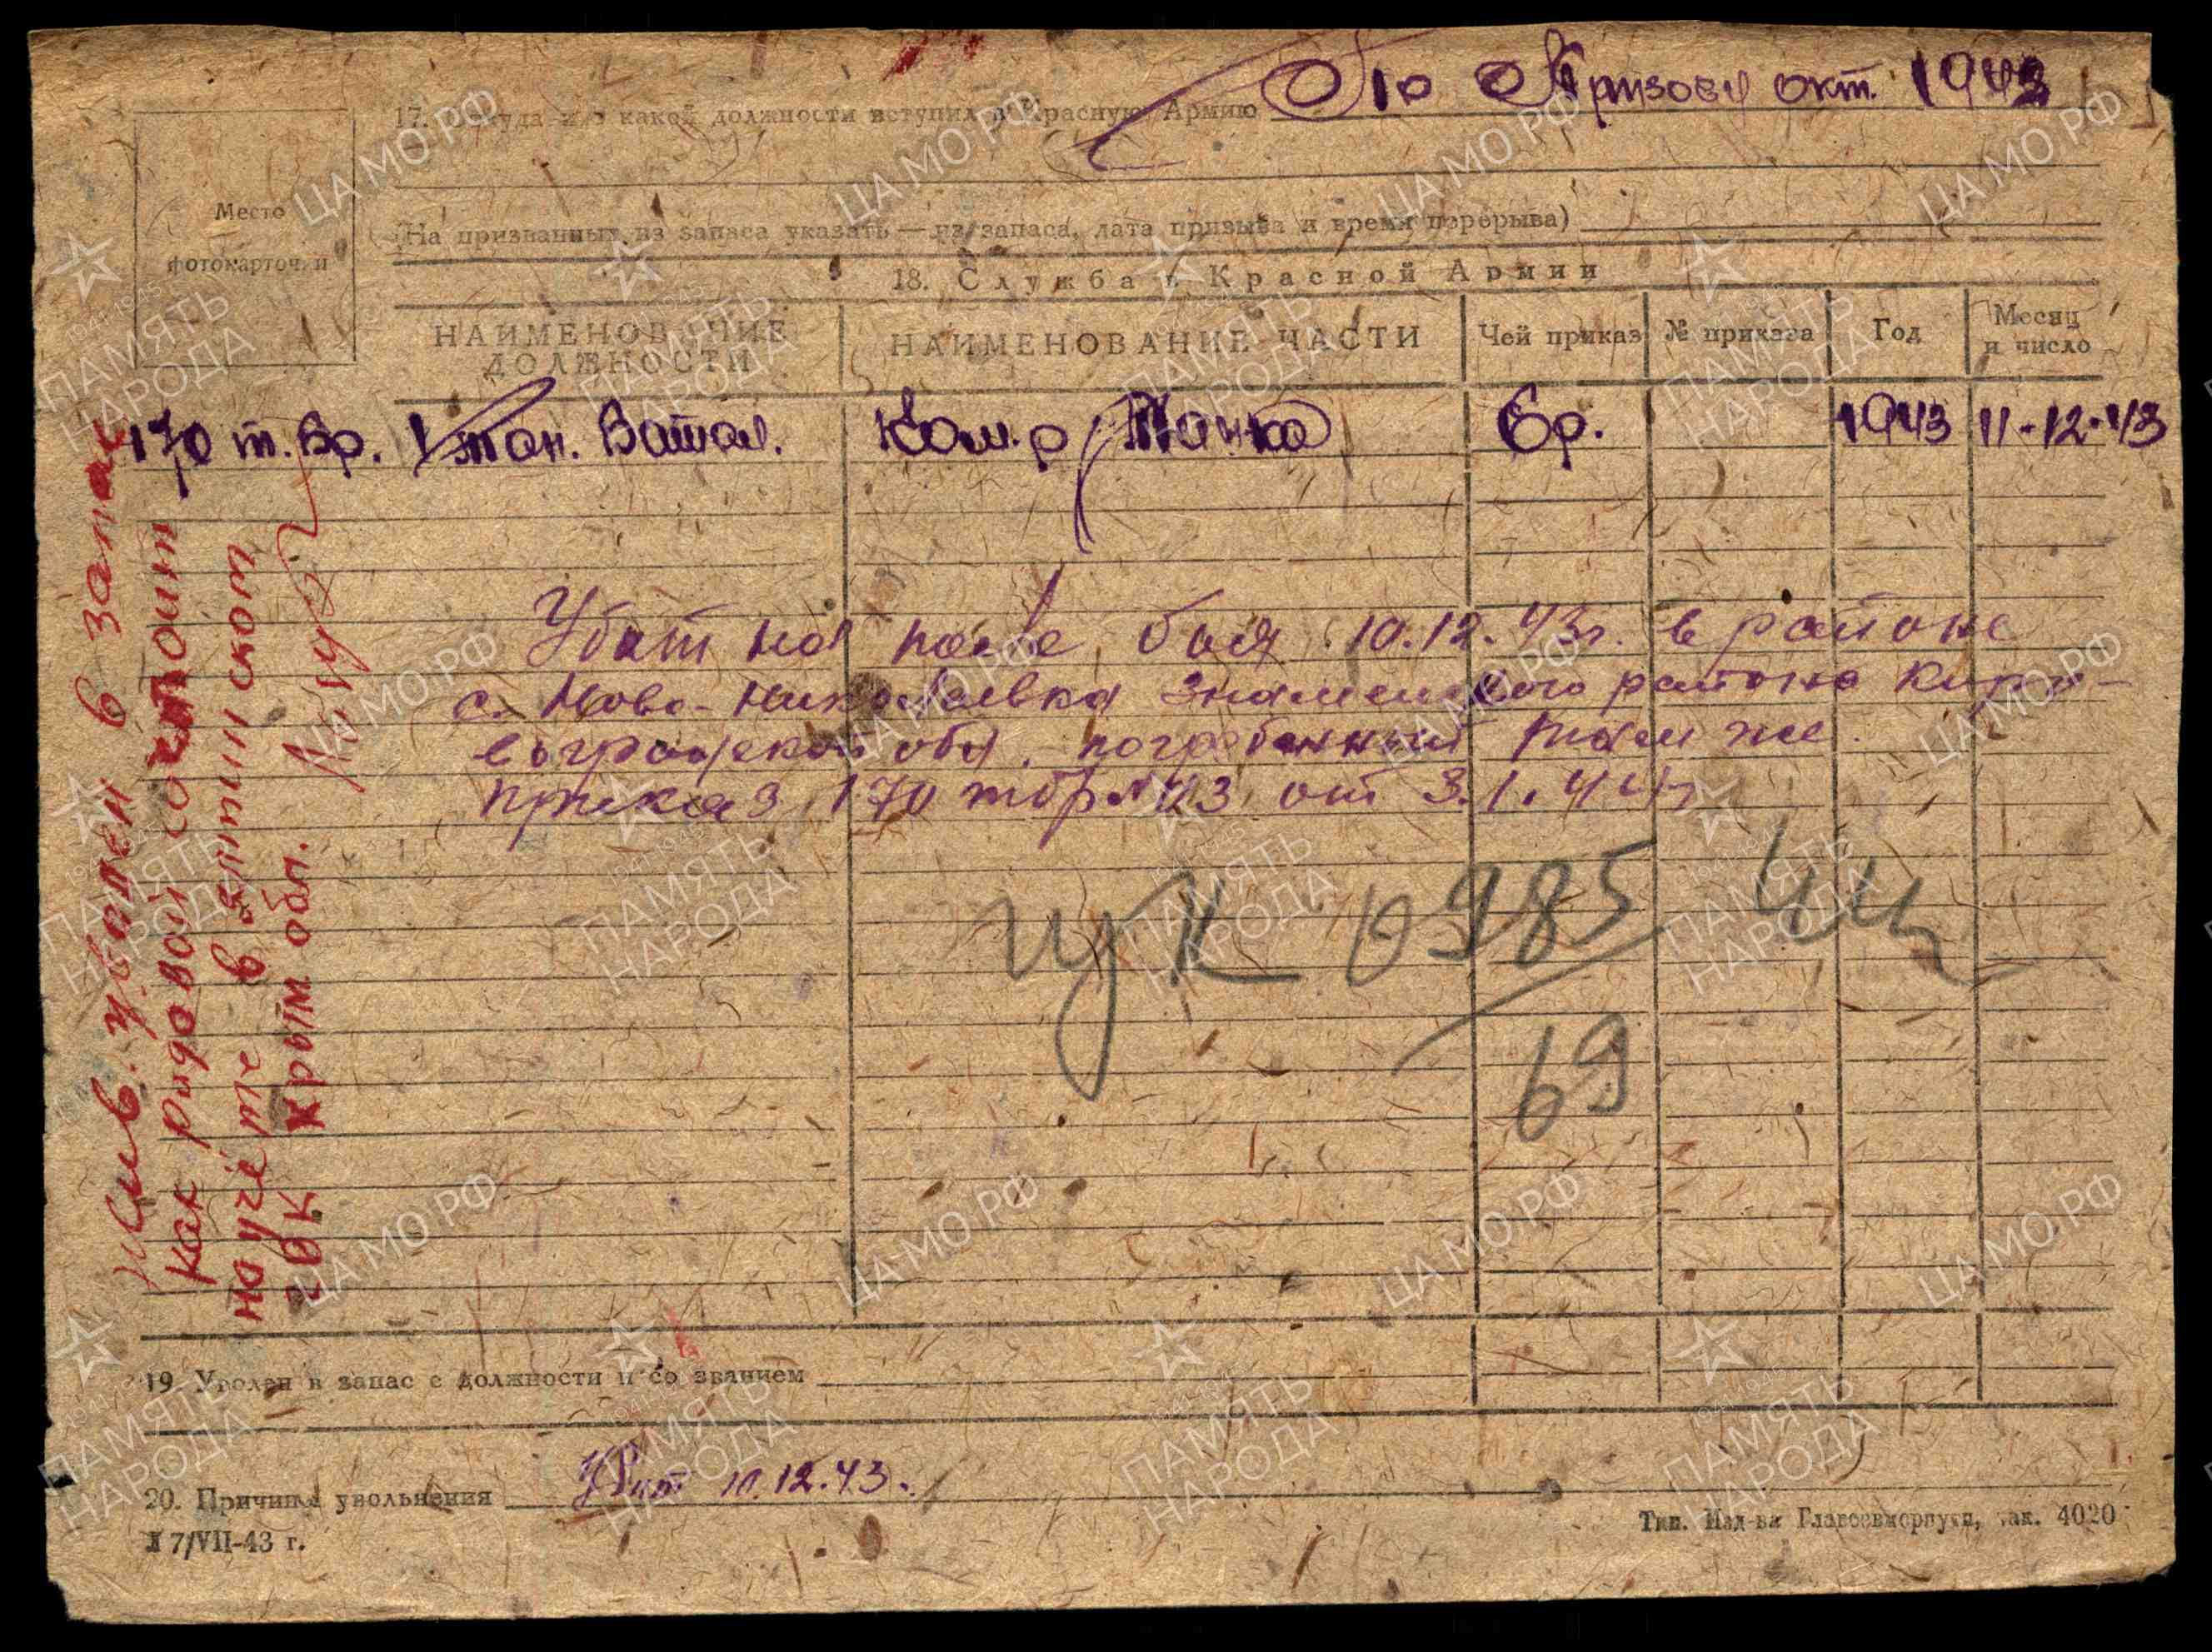 17. Откуда и в какой должности вступил в Красную Армию По Призову окт. 1943
Место
фотокарточки
(На призванных из запаса указать — из запаса, дата призыва и время перерыва)
18. Служба в Красной Армии
НАИМЕНОВАНИЕ ДОЛЖНОСТИ
НАИМЕНОВАНИЕ ЧАСТИ
Чей приказ
№ приказа
Год
Месяц и число
170 т. бр. 1 тан. Батал. Ком-р Танка бр. 1943 11-12-43
Убит на поле боя 10.12.43г. в районе
с. Ново-Николаевка Знаменского района Киро-
воградской обл. погребенный там же.
приказ 170 тбр №23 от 3.1.44г
ГУК 0985 44
69
жив. уволен в запас
как рядовой состоит
на учёте в
ОВК Крым обл.
19. Уволен в запас с должности и со званием
20. Причины увольнения Убит 10.12.43.
7/VII-43 г.
Тип. Изд-ва Главсевморпути, зак. 4020
ЦА МО РФ
ПАМЯТЬ НАРОДА
1941-1945